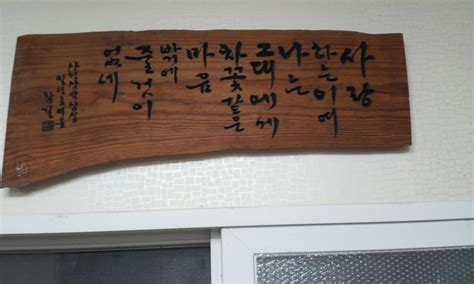 사랑
하는이여
나는
그대에게
차꽃같은
마음
밖에
줄것이
없네